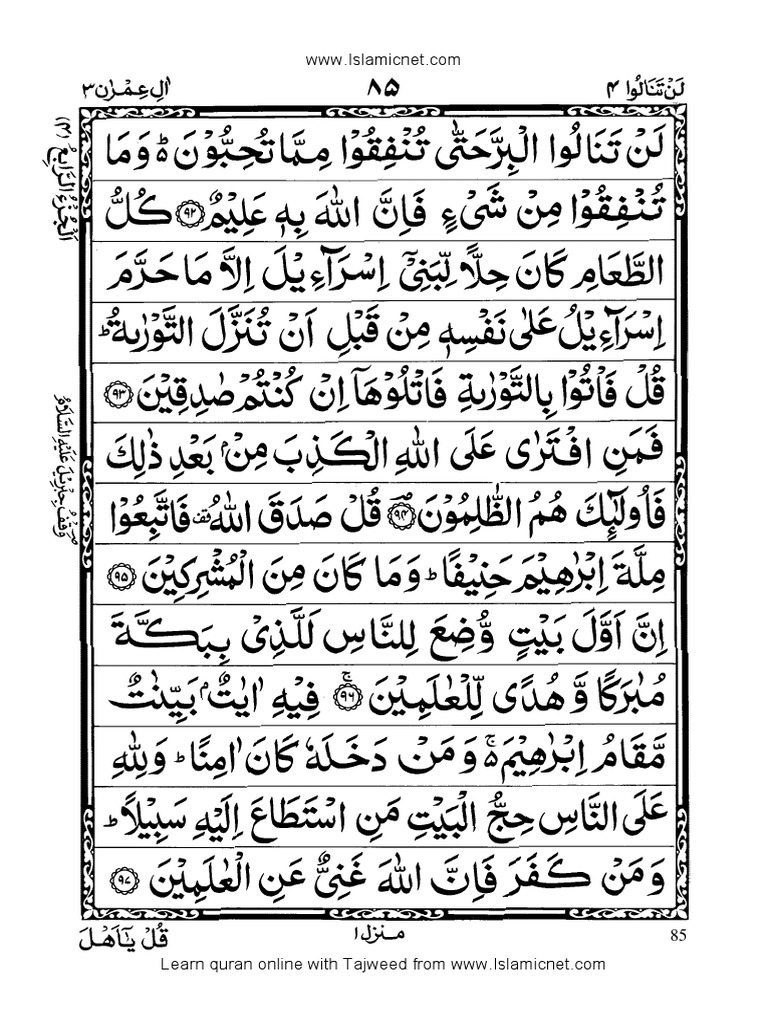 www.Islamicnet.com
لَنْ تَنَالُوا ۴
۸۵
اٰلِ عِمْرٰن ۳
لَنْ تَنَالُوا الْبِرَّ حَتّٰى تُنْفِقُوْا مِمَّا تُحِبُّوْنَ ؕ۬ وَمَا
تُنْفِقُوْا مِنْ شَىْءٍ فَاِنَّ اللّٰهَ بِهٖ عَلِيْمٌ ۹۲ كُلُّ
الطَّعَامِ كَانَ حِلًّا لِّبَنِىْۤ اِسْرَآءِيْلَ اِلَّا مَا حَرَّمَ
اِسْرَآءِيْلُ عَلٰى نَفْسِهٖ مِنْ قَبْلِ اَنْ تُنَزَّلَ التَّوْرٰىةُ ؕ
قُلْ فَاْتُوْا بِالتَّوْرٰىةِ فَاتْلُوْهَاۤ اِنْ كُنْتُمْ صٰدِقِيْنَ ۹۳
فَمَنِ افْتَرٰى عَلَى اللّٰهِ الْكَذِبَ مِنْۢ بَعْدِ ذٰلِكَ
فَاُولٰٓئِكَ هُمُ الظّٰلِمُوْنَ ۹۴ قُلْ صَدَقَ اللّٰهُ فَاتَّبِعُوْا
مِلَّةَ اِبْرٰهِيْمَ حَنِيْفًا ؕ وَمَا كَانَ مِنَ الْمُشْرِكِيْنَ ۹۵
اِنَّ اَوَّلَ بَيْتٍ وُّضِعَ لِلنَّاسِ لَلَّذِىْ بِبَكَّةَ
مُبٰرَكًا وَّهُدًى لِّلْعٰلَمِيْنَ ۚ ۹۶ فِيْهِ اٰيٰتٌۢ بَيِّنٰتٌ
مَّقَامُ اِبْرٰهِيْمَ ۬ۚ وَمَنْ دَخَلَهٗ كَانَ اٰمِنًا ؕ وَلِلّٰهِ
عَلَى النَّاسِ حِجُّ الْبَيْتِ مَنِ اسْتَطَاعَ اِلَيْهِ سَبِيْلًا ؕ
وَمَنْ كَفَرَ فَاِنَّ اللّٰهَ غَنِىٌّ عَنِ الْعٰلَمِيْنَ ۹۷
اَلْجُزْءُ الرَّابِعُ (۴)
وَقْفُ جِبْرِيْلَ عَلَيْهِ السَّلَامُ
85
منزل ۱
قُلْ يٰۤاَهْلَ
Learn quran online with Tajweed from www.Islamicnet.com